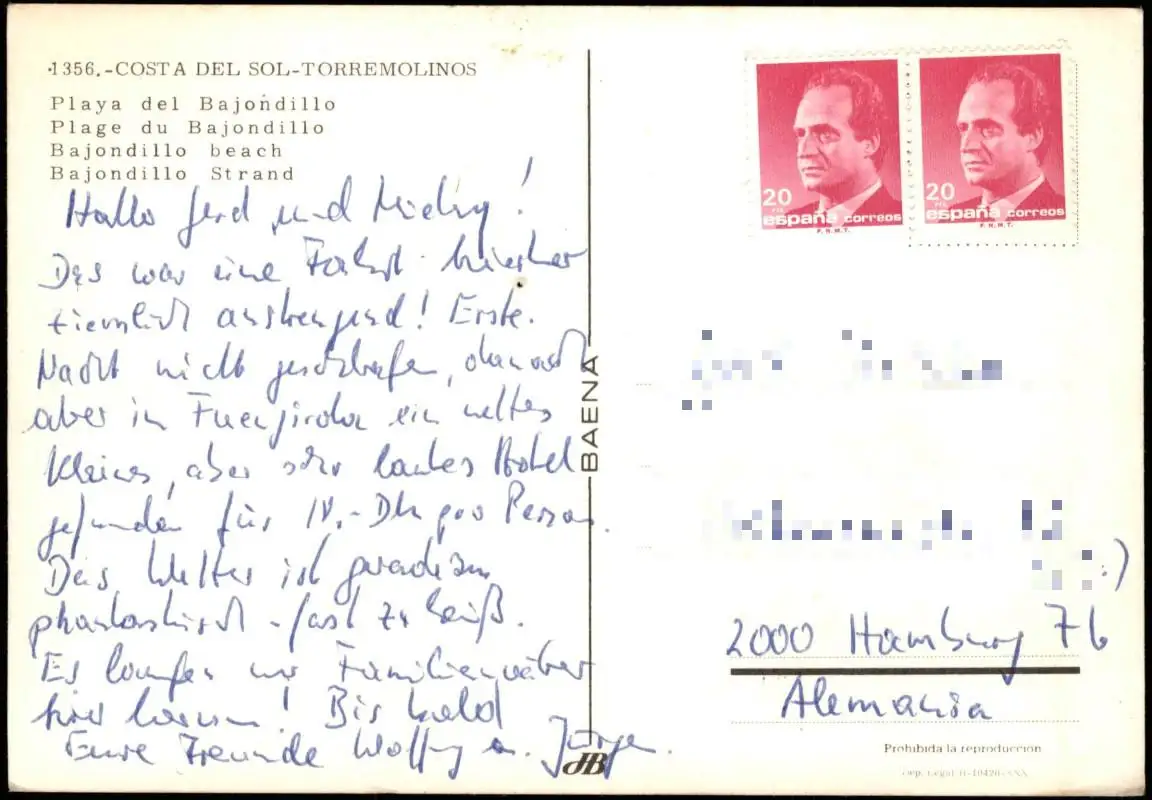 1356.-COSTA DEL SOL-TORREMOLINOS
Playa del Bajondillo
Plage du Bajondillo
Bajondillo beach
Bajondillo Strand
Hallo Gerd und
Das war eine Fahrt hierher
ziemlich anstrengend! Erste
Nacht nicht geschlafen, danach
aber in Fuengirola ein nettes
kleines, aber sehr lautes Hotel
gefunden für DM pro Person.
Das Wetter ist geradezu
phantastisch - fast zu heiß.
Es laufen nur Familienväter
hier herum! Bis bald
Eure Freunde Wolfg u. Jürgen.
BAENA
JB
20
PTS
españa correos
F.N.M.T.
20
PTS
españa correos
F.N.M.T.
2000 Hamburg 76
Alemania
Prohibida la reproducción